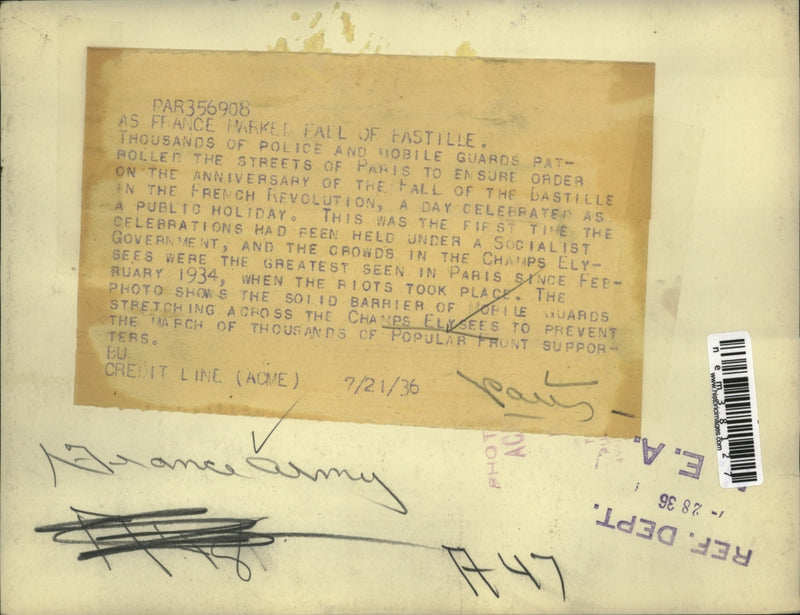 PAR356908
AS FRANCE MARKED FALL OF BASTILLE.
THOUSANDS OF POLICE AND MOBILE GUARDS PAT-
ROLLED THE STREETS OF PARIS TO ENSURE ORDER
ON THE ANNIVERSARY OF THE FALL OF THE BASTILLE
IN THE FRENCH REVOLUTION, A DAY CELEBRATED AS
A PUBLIC HOLIDAY. THIS WAS THE FIRST TIME THE
CELEBRATIONS HAD BEEN HELD UNDER A SOCIALIST
GOVERNMENT, AND THE CROWDS IN THE CHAMPS ELY-
SEES WERE THE GREATEST SEEN IN PARIS SINCE FEB-
RUARY 1934, WHEN THE RIOTS TOOK PLACE. THE
PHOTO SHOWS THE SOLID BARRIER OF MOBILE GUARDS
STRETCHING ACROSS THE CHAMPS ELYSEES TO PREVENT
THE MARCH OF THOUSANDS OF POPULAR FRONT SUPPOR-
TERS.
BU
CREDIT LINE (ACME) 7/21/36
Paris
France Army
A47
PHOT
AC
E.A.
28 36
REF. DEPT.
nem38127
www.historicimages.com